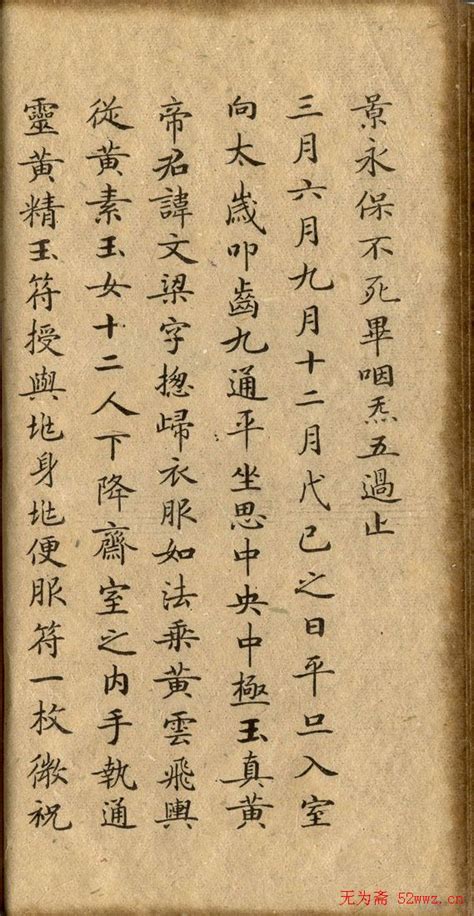 景永保不死畢咽炁五過止
三月六月九月十二月戊己之日平旦入室
向太歲叩齒九通平坐思中央中極玉真黃
帝君諱文梁字揔歸衣服如法乗黃雲飛輿
從黃素玉女十二人下降齋室之内手執通
靈黃精玉符授與地身地便服符一枚微祝
无为斋 52wwz.cn